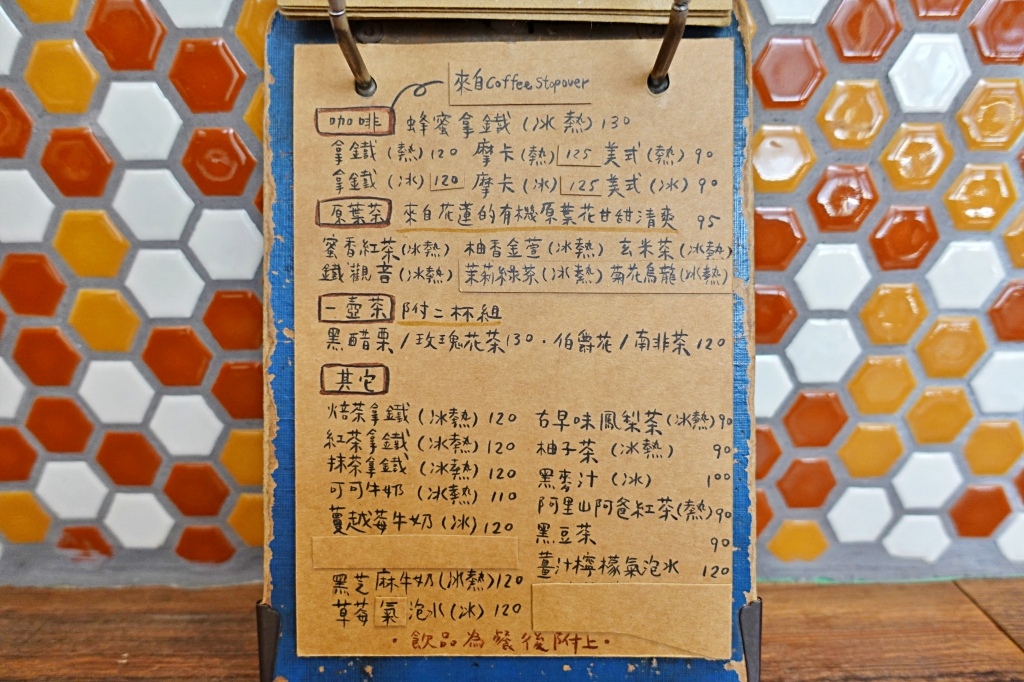 來自Coffee Stopover
咖啡 蜂蜜拿鐵(冰熱)130
拿鐵(熱)120 摩卡(熱)125 美式(熱)90
拿鐵(冰)120 摩卡(冰)125 美式(冰)90
原葉茶 來自花蓮的有機原葉花甘紺清爽 95
蜜香紅茶(冰熱) 柚香金萱(冰熱) 玄米茶(冰熱)
鐵觀音(冰熱) 茉莉綠茶(冰熱) 菊花烏龍(冰熱)
一壺茶 附二杯組
黑醋栗/玫瑰花茶130·伯爵花/南非茶120
其它
焙茶拿鐵(冰熱)120
紅茶拿鐵(冰熱)120
抹茶拿鐵(冰熱)120
可可牛奶(冰熱)110
蔓越莓牛奶(冰)120
黑芝麻牛奶(冰熱)120
草莓氣泡水(冰)120
古早味鳳梨茶(冰熱)90
柚子茶(冰熱)90
黑麥汁(冰)100
阿里山阿爸紅茶(熱)90
黑豆茶 90
薑汁檸檬氣泡水 120
·飲品為餐後附上·